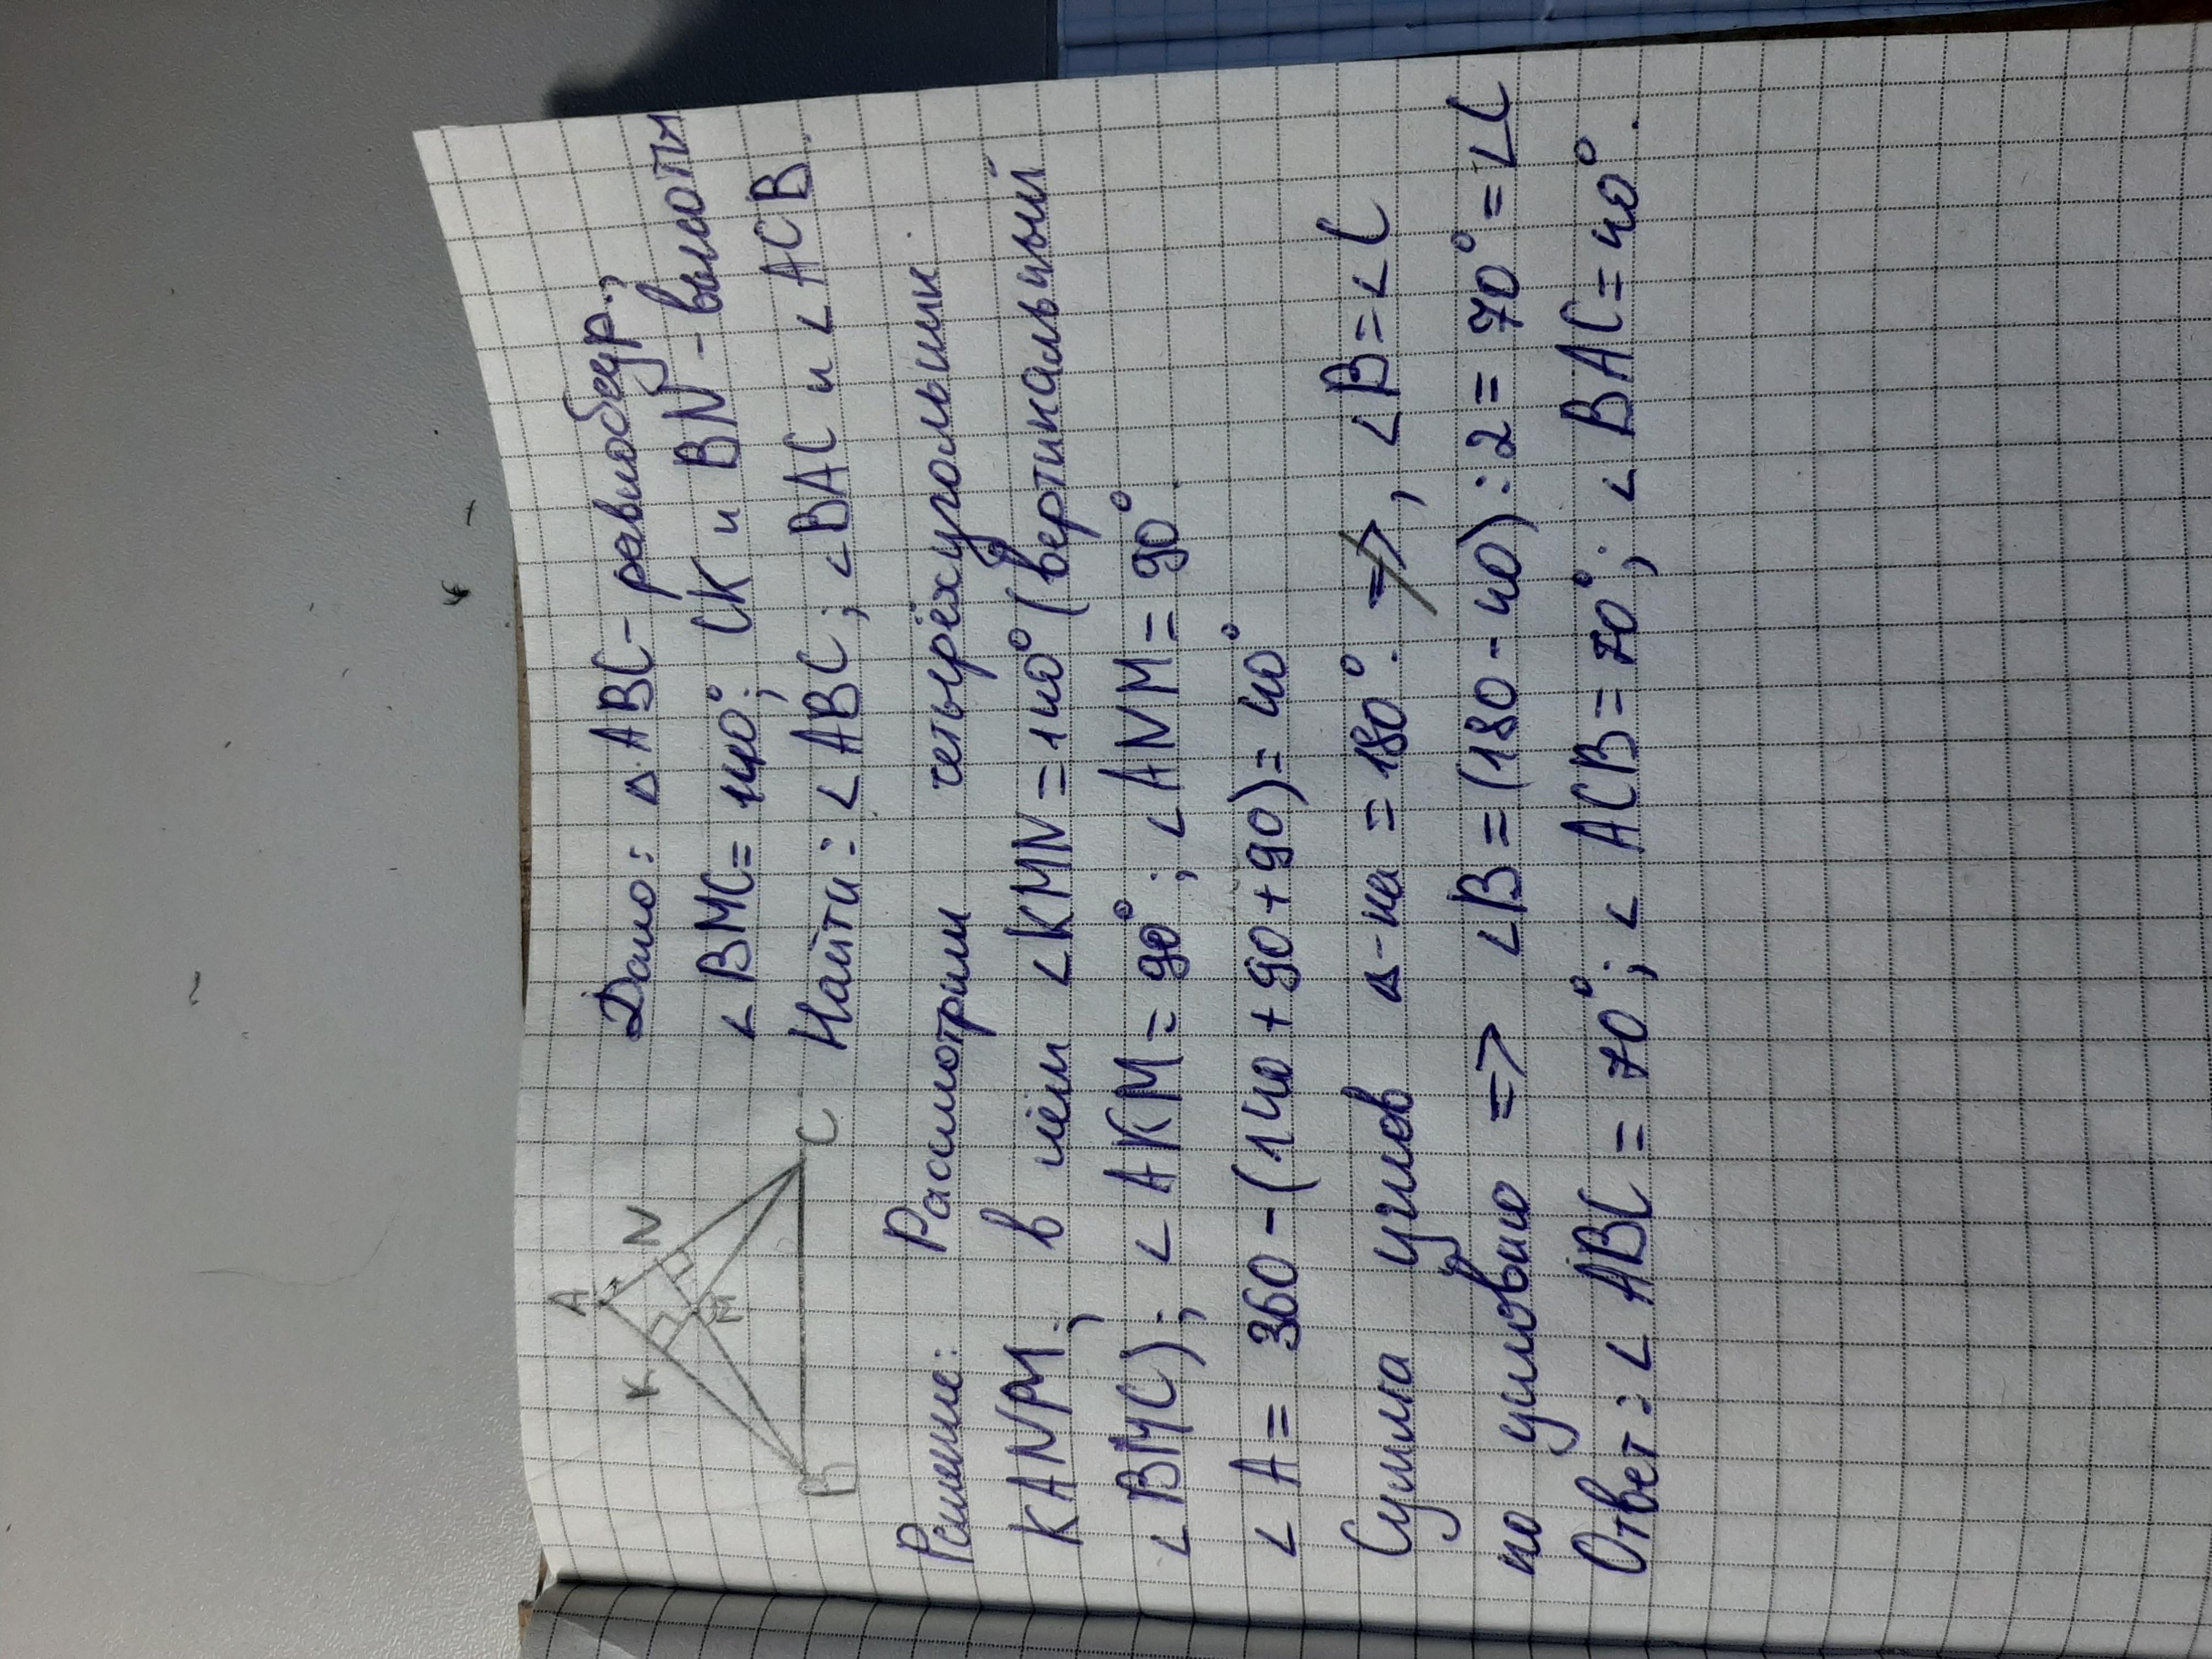 A
K
N
M
B
C
Дано: △ABC - равнобедр.;
∠BMC = 140°; CK и BN - высоты
Найти: ∠ABC; ∠BAC и ∠ACB.
Решение: Рассмотрим четырёхугольник
KANM; в нём ∠KMN = 140° (вертикальный
∠BMC); ∠AKM = 90°; ∠ANM = 90°.
∠A = 360 - (140 + 90 + 90) = 40°
Сумма углов △-ка = 180°. =>, ∠B = ∠C
по условию => ∠B = (180 - 40) : 2 = 70° = ∠C
Ответ: ∠ABC = 70°; ∠ACB = 70°; ∠BAC = 40°.